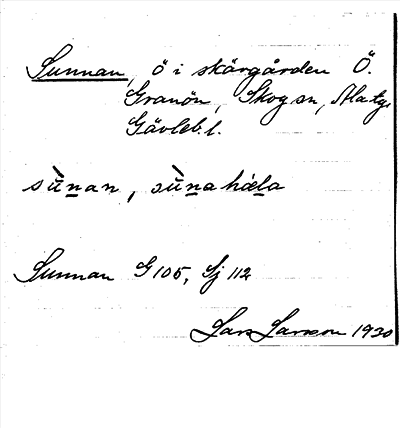 Sunnan, ö i skärgården Ö.
Granön, Skog sn, Ala tg.
Gävleb. l.
sǜnan, sǜnahæla
Sunnan G 105, Sj 112
Lars Larsson 1930